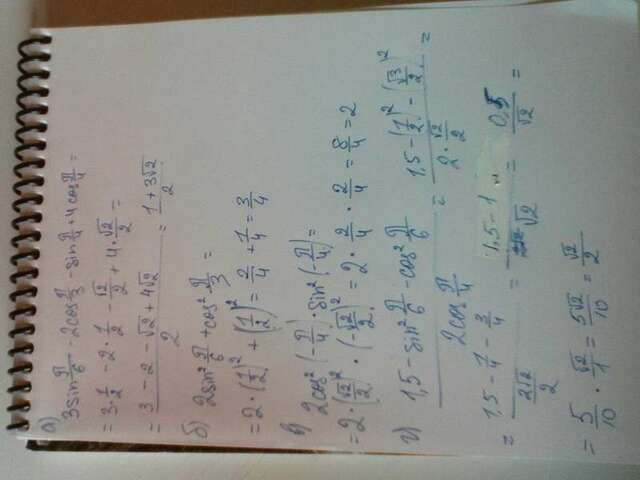 а)
3sin π/6 - 2cos π/3 - sin π/4 + 4cos π/4 =
= 3·1/2 - 2·1/2 - √2/2 + 4·√2/2 =
= (3 - 2 - √2 + 4√2)/2 = (1 + 3√2)/2
б) 2sin² π/6 + cos² π/3 =
= 2·(1/2)² + (1/2)² = 2/4 + 1/4 = 3/4
в) 2cos²(-π/4)·sin²(-π/4) =
= 2·(√2/2)²·(-√2/2)² = 2·2/4·2/4 = 8/4 = 2
г) (1,5 - sin² π/6 - cos² π/6)/(2cos π/4) = (1,5 - (1/2)² - (√3/2)²)/(2·√2/2) =
= (1,5 - 1/4 - 3/4)/(2√2/2) = (1,5 - 1)/√2 = 0,5/√2 =
= 5/10 · √2/1 = 5√2/10 = √2/2